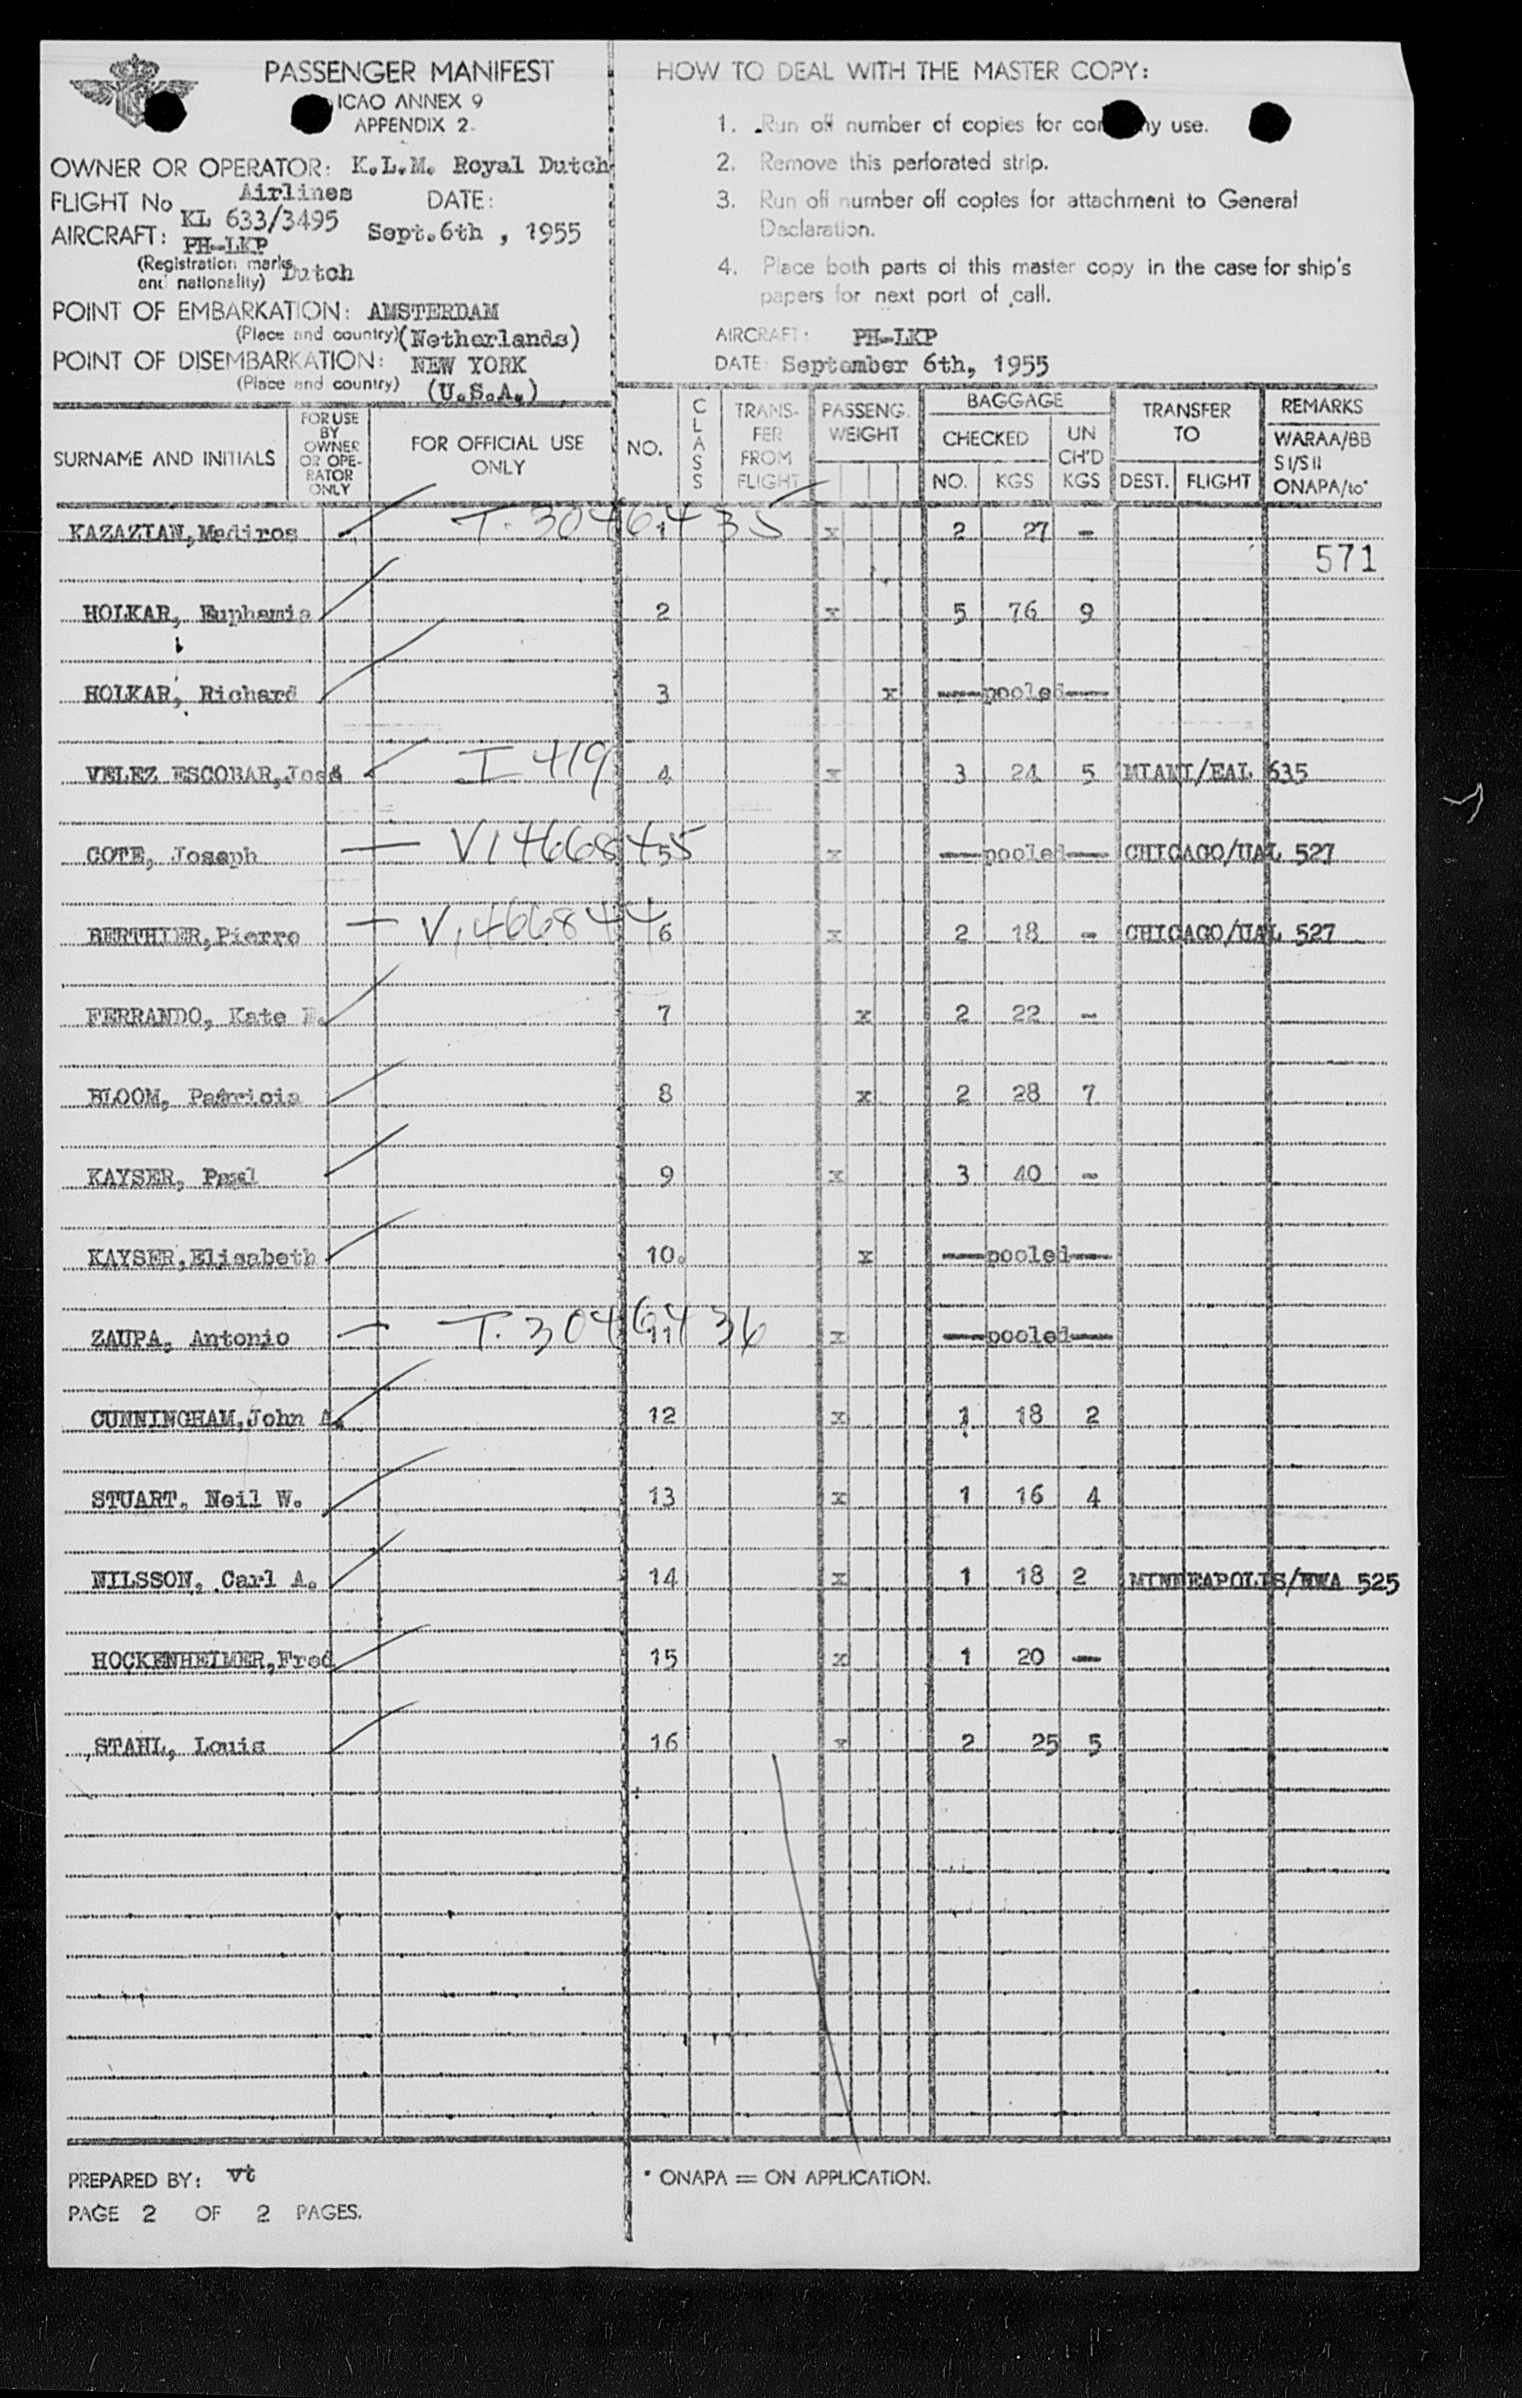 PASSENGER MANIFEST
ICAO ANNEX 9
APPENDIX 2.
OWNER OR OPERATOR: K.L.M. Royal Dutch
Airlines
FLIGHT No KL 633/3495
DATE: Sept.6th , 1955
AIRCRAFT: PH-LKP
(Registration marks and nationality) Dutch
POINT OF EMBARKATION: AMSTERDAM
(Place and country) (Netherlands)
POINT OF DISEMBARKATION: NEW YORK
(Place and country) (U.S.A.)
HOW TO DEAL WITH THE MASTER COPY:
1. Run off number of copies for use.
2. Remove this perforated strip.
3. Run off number off copies for attachment to General
Declaration.
4. Place both parts of this master copy in the case for ship's
papers for next port of call.
AIRCRAFT: PH-LKP
DATE: September 6th, 1955
SURNAME AND INITIALS
FOR USE BY OWNER OR OPE-RATOR ONLY
FOR OFFICIAL USE ONLY
NO.
CLASS
TRANS-FER FROM FLIGHT
PASSENG. WEIGHT
BAGGAGE
CHECKED
NO. KGS
UN CH'D KGS
TRANSFER TO
DEST. FLIGHT
REMARKS
WARAA/BB
SI/SII
ONAPA/to*
KAZAZIAN, Mediros T. 3046435 1 x 2 27 -
571
HOLKAR, Euphemia 2 x 5 76 9
HOLKAR, Richard 3 x ---pooled---
VELEZ ESCOBAR, José I 419 4 x 3 24 5 MIAMI/EAL 635
COTE, Joseph — V1466845 5 x ---pooled--- CHICAGO/UAL 527
BERTHIER, Pierre — V1466844 6 x 2 18 - CHICAGO/UAL 527
FERRANDO, Kate 7 x 2 22 -
BLOOM, Patricia 8 x 2 28 7
KAYSER, Paul 9 x 3 40 -
KAYSER, Elisabeth 10. x ---pooled---
ZAUPA, Antonio — T. 3046436 11 x ---pooled---
CUNNINGHAM, John A. 12 x 1 18 2
STUART, Neil W. 13 x 1 16 4
NILSSON, Carl A. 14 x 1 18 2 MINNEAPOLIS/NWA 525
HOCKENHEIMER, Fred 15 x 1 20 -
STAHL, Louis 16 x 2 25 5
PREPARED BY: vt
PAGE 2 OF 2 PAGES.
* ONAPA = ON APPLICATION.